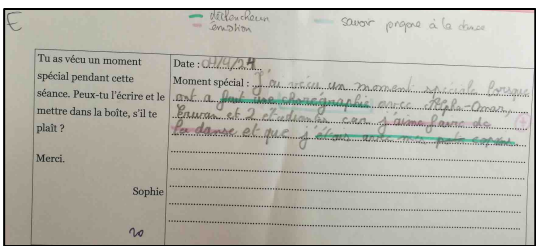 E
déclencheur
émotion
savoir propre à la danse
Tu as vécu un moment
spécial pendant cette
séance. Peux-tu l'écrire et le
mettre dans la boîte, s'il te
plaît ?
Merci.
Sophie
20
Date : 04/4/24
Moment spécial : J'ai vécu un moment spéciale lorsque
ont a fait une chorégraphie avec
et 2 etudiants car j'aime faire de (+)
la danse et que j'étais avec mes